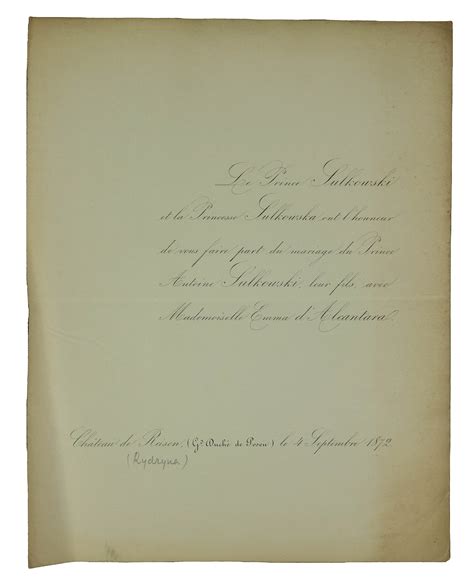 Le Prince Sulkowski
et la Princesse Sulkowska ont l'honneur
de vous faire part du mariage du Prince
Antoine Sulkowski, leur fils, avec
Mademoiselle Emma d'Alcantara.
Château de Reisen, (Gd. Duché de Posen) le 4 Septembre 1872.
(Rydzyna)